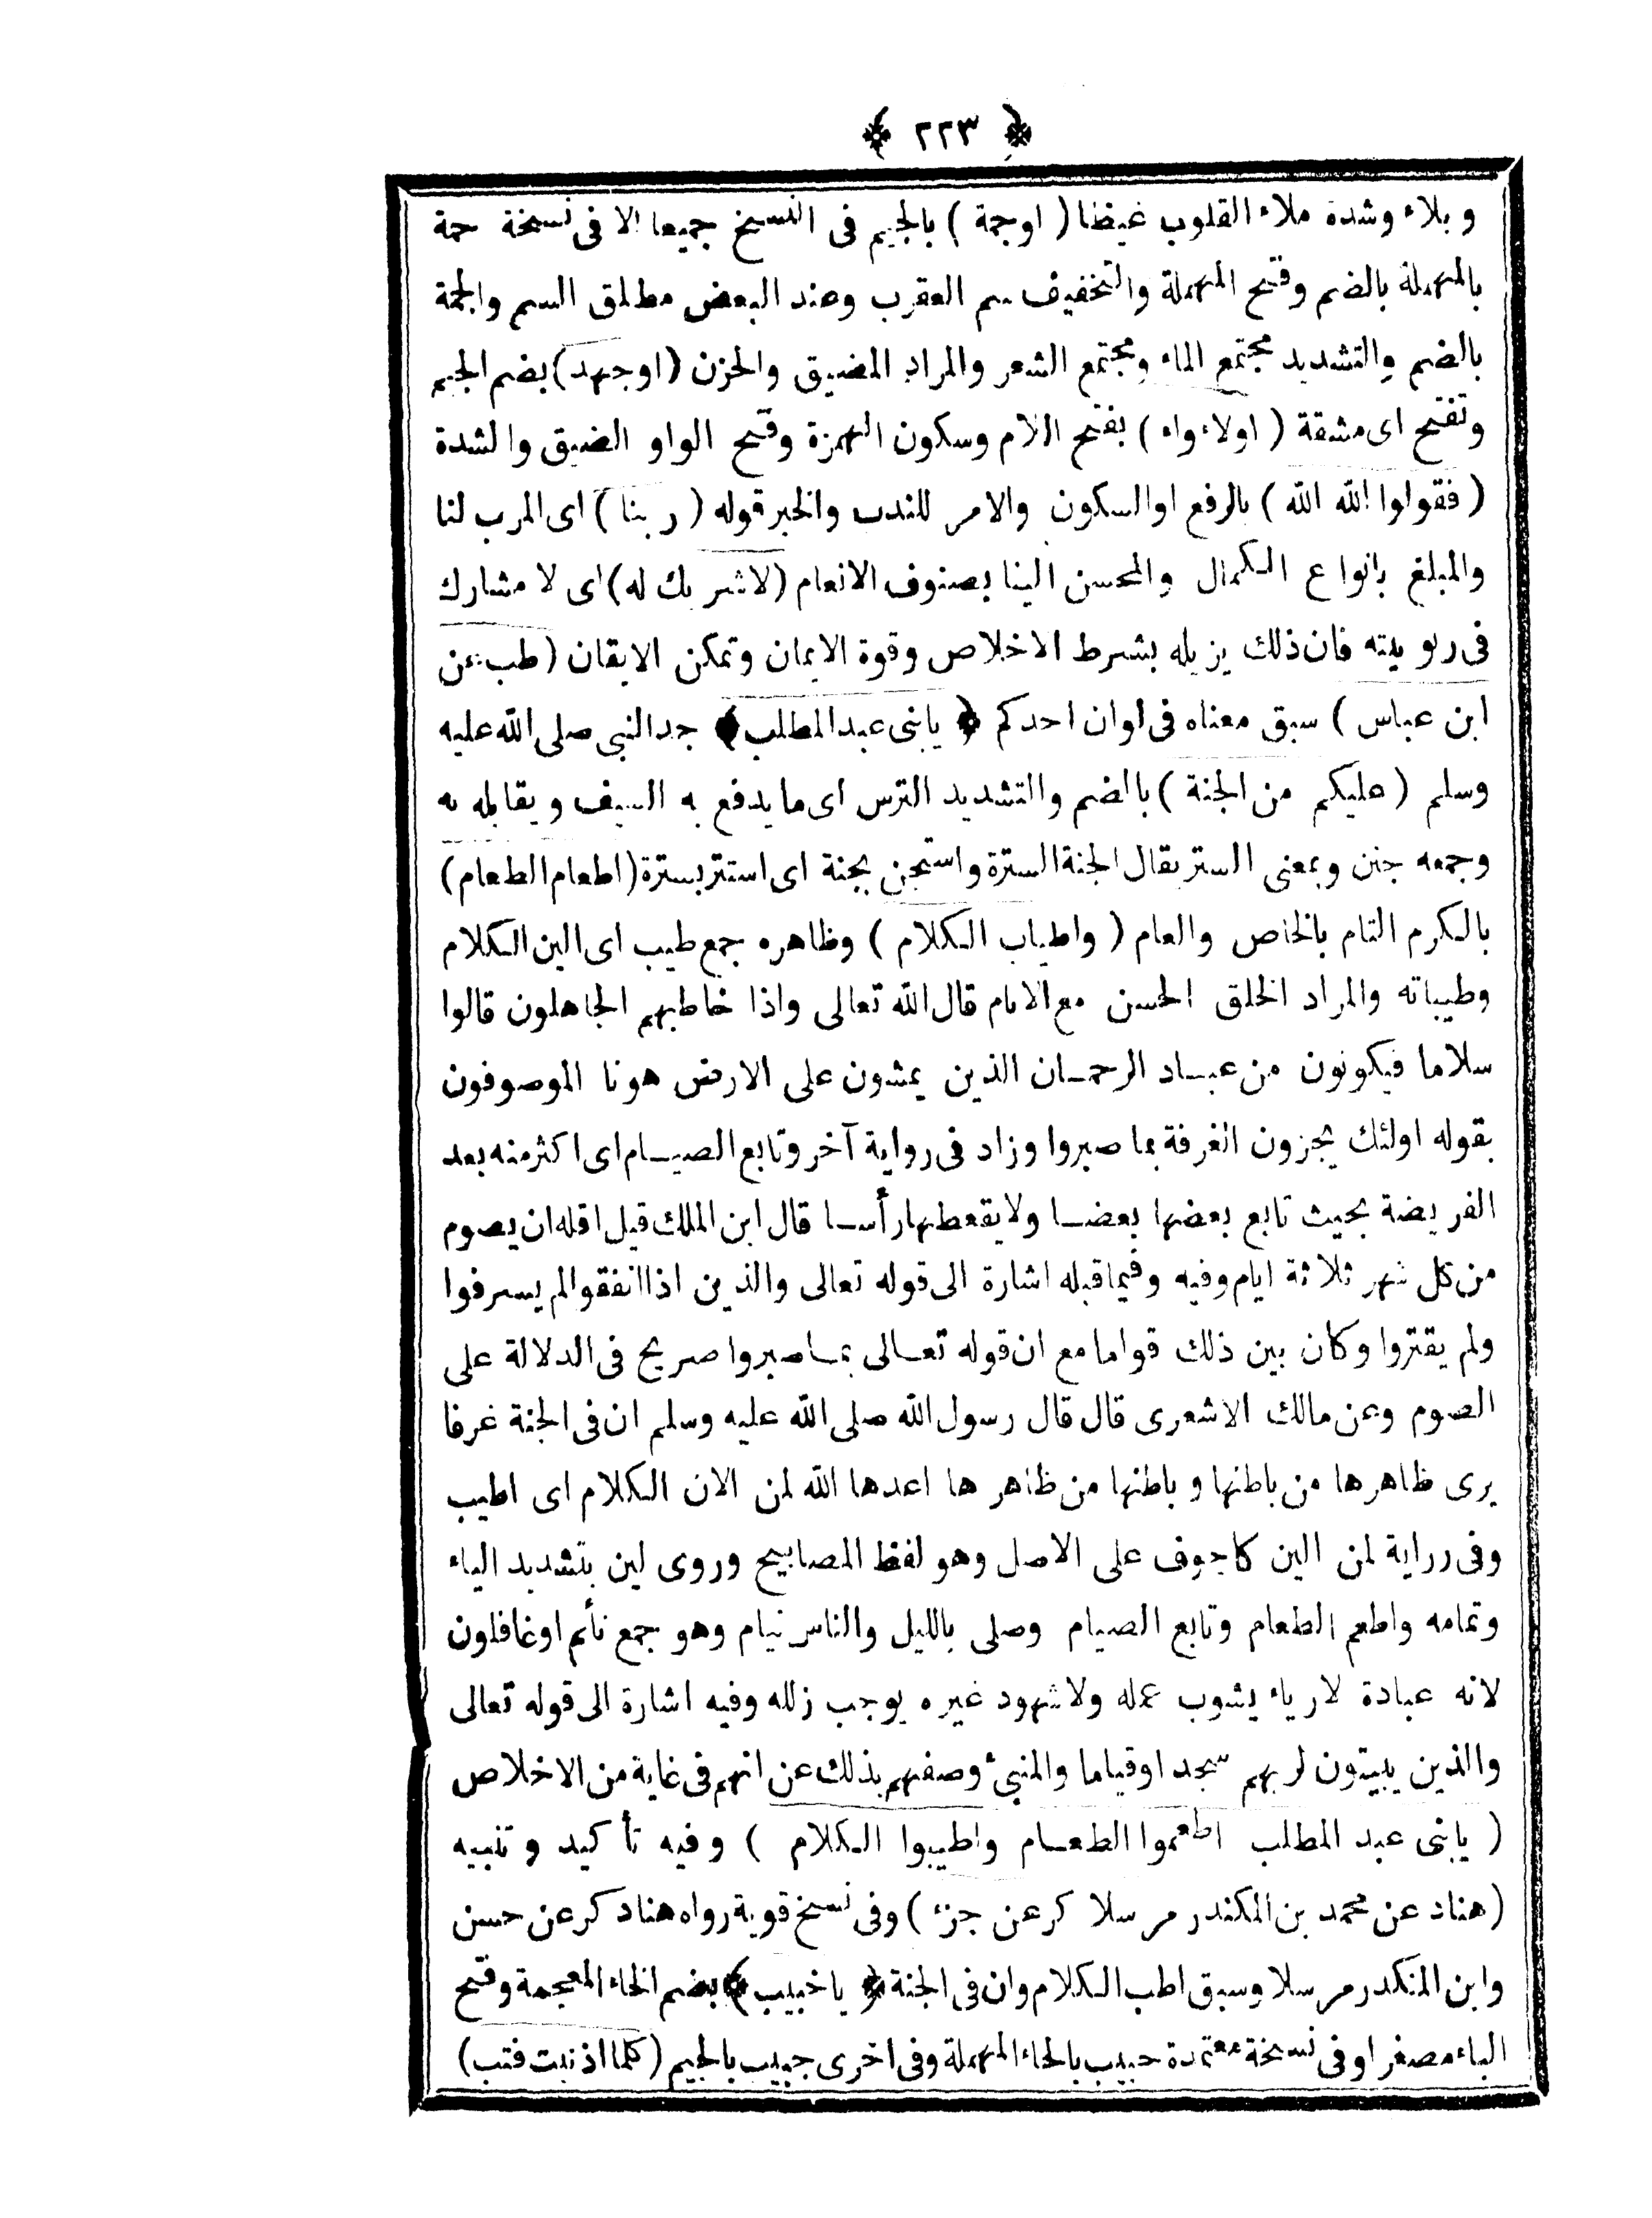 ﴿ ٢٢٣ ﴾
وبلاء وشدة ملاء القلوب غيظا ( اوجمة ) بالجيم فى النسخ جميعا الا فى نسخة حمة
بالمهملة بالضم وفتح المهملة والتخفيف سم العقرب وعند البعض مطلق السم والجمة
بالضم والتشديد مجتمع الماء ومجتمع الشعر والمراد المضيق والحزن (اوجهد) بضم الجيم
وتفتح اى مشقة ( اولاءواء ) بفتح اللام وسكون الهمزة وفتح الواو الضيق والشدة
( فقولوا الله الله ) بالرفع اوالسكون والامر للندب والخبر قوله ( ربنا ) اى المرب لنا
والمبلغ بانواع الكمال والمحسن الينا بصنوف الانعام (لاشريك له) اى لا مشارك
فى ربوبيته فان ذلك يزيله بشرط الاخلاص وقوة الايمان وتمكن الايقان ( طب عن
ابن عباس ) سبق معناه فى اوان احدكم ﴿ يابنى عبدالمطلب ﴾ جدالنبى صلى الله عليه
وسلم ( عليكم من الجنة ) بالضم والتشديد الترس اى ما يدفع به السيف ويقابله به
وجمعه جنن وبمعنى الستر يقال الجنة السترة واستجن بجنة اى استتر بسترة (اطعام الطعام)
بالكرم التام بالخاص والعام ( واطياب الكلام ) وظاهره جمع طيب اى الين الكلام
وطيباته والمراد الخلق الحسن مع الانام قال الله تعالى واذا خاطبهم الجاهلون قالوا
سلاما فيكونون من عباد الرحمان الذين يمشون على الارض هونا الموصوفون
بقوله اولئك يجزون الغرفة بما صبروا وزاد فى رواية آخر وتابع الصيام اى اكثر منه بعد
الفريضة بحيث تابع بعضها بعضا ولايقطعها رأسا قال ابن الملك قيل اقله ان يصوم
من كل شهر ثلاثة ايام وفيه وفيما قبله اشارة الى قوله تعالى والذين اذا انفقوا لم يسرفوا
ولم يقتروا وكان بين ذلك قواما مع ان قوله تعالى بما صبروا صريح فى الدلالة على
الصوم وعن مالك الاشعرى قال قال رسول الله صلى الله عليه وسلم ان فى الجنة غرفا
يرى ظاهرها من باطنها وباطنها من ظاهرها اعدها الله لمن الان الكلام اى اطيب
وفى رراية لمن الين كاجوف على الاصل وهو لفظ المصابيح وروى لين بتشديد الياء
وتمامه واطعم الطعام وتابع الصيام وصلى بالليل والناس نيام وهو جمع نأئم اوغافلون
لانه عبادة لارياء يشوب عمله ولاشهود غيره يوجب زلله وفيه اشارة الى قوله تعالى
والذين يبيتون لربهم سجدا وقياما والمنبئ وصفهم بذلك عن انهم فى غاية من الاخلاص
( يابنى عبد المطلب اطعموا الطعام واطيبوا الكلام ) وفيه تأكيد وتنبيه
(هناد عن محمد بن المكندر مرسلا كر عن جزء ) وفى نسخ قوية رواه هناد كر عن حسن
وابن المنكدر مرسلا وسبق اطب الكلام وان فى الجنة ﴿ يا خبيب ﴾ بضم الخاء المعجمة وفتح
الباء مصغرا وفى نسخة معتمدة حبيب بالحاء المهملة وفى اخرى جبيب بالجيم (كلما اذنبت فتب)